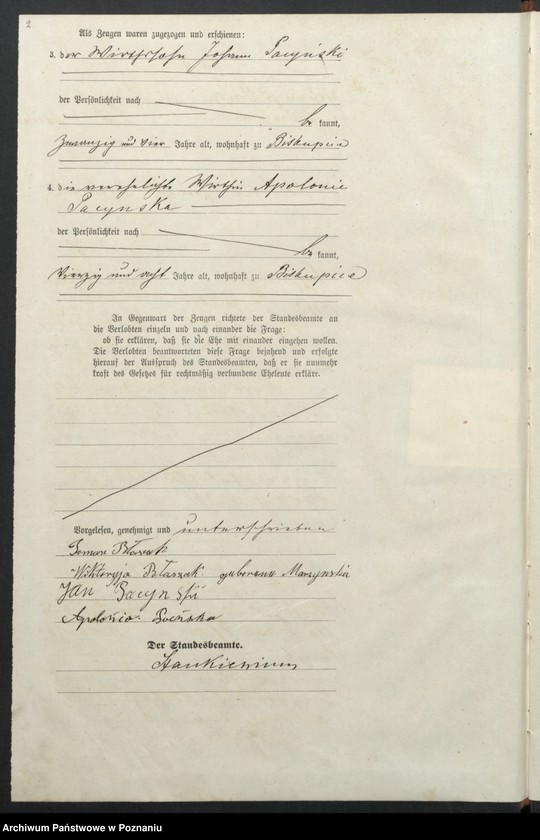 2
Als Zeugen waren zugezogen und erschienen:
3. der Wirthssohn Johann Pacyński
der Persönlichkeit nach
be kannt,
Zwanzig und vier Jahre alt, wohnhaft zu Biskupice
4. die verehelichte Wirthin Apolonie
Pacynska
der Persönlichkeit nach
be kannt,
Vierzig und acht Jahre alt, wohnhaft zu Biskupice
In Gegenwart der Zeugen richtete der Standesbeamte an
die Verlobten einzeln und nach einander die Frage:
ob sie erklären, daß sie die Ehe mit einander eingehen wollen.
Die Verlobten beantworteten diese Frage bejahend und erfolgte
hierauf der Ausspruch des Standesbeamten, daß er sie nunmehr
kraft des Gesetzes für rechtmäßig verbundene Eheleute erkläre.
Vorgelesen, genehmigt und unterschrieben
Wiktoryja Błaszak geborene
Jan Pacyński
Apolonia
Der Standesbeamte.
Archiwum Państwowe w Poznaniu